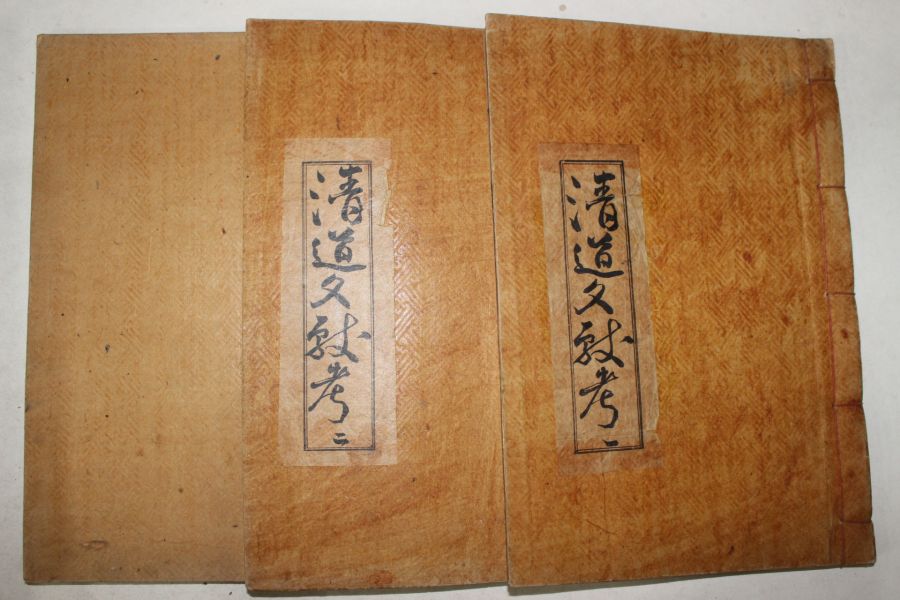 清道文献考 一
清道文献考 二